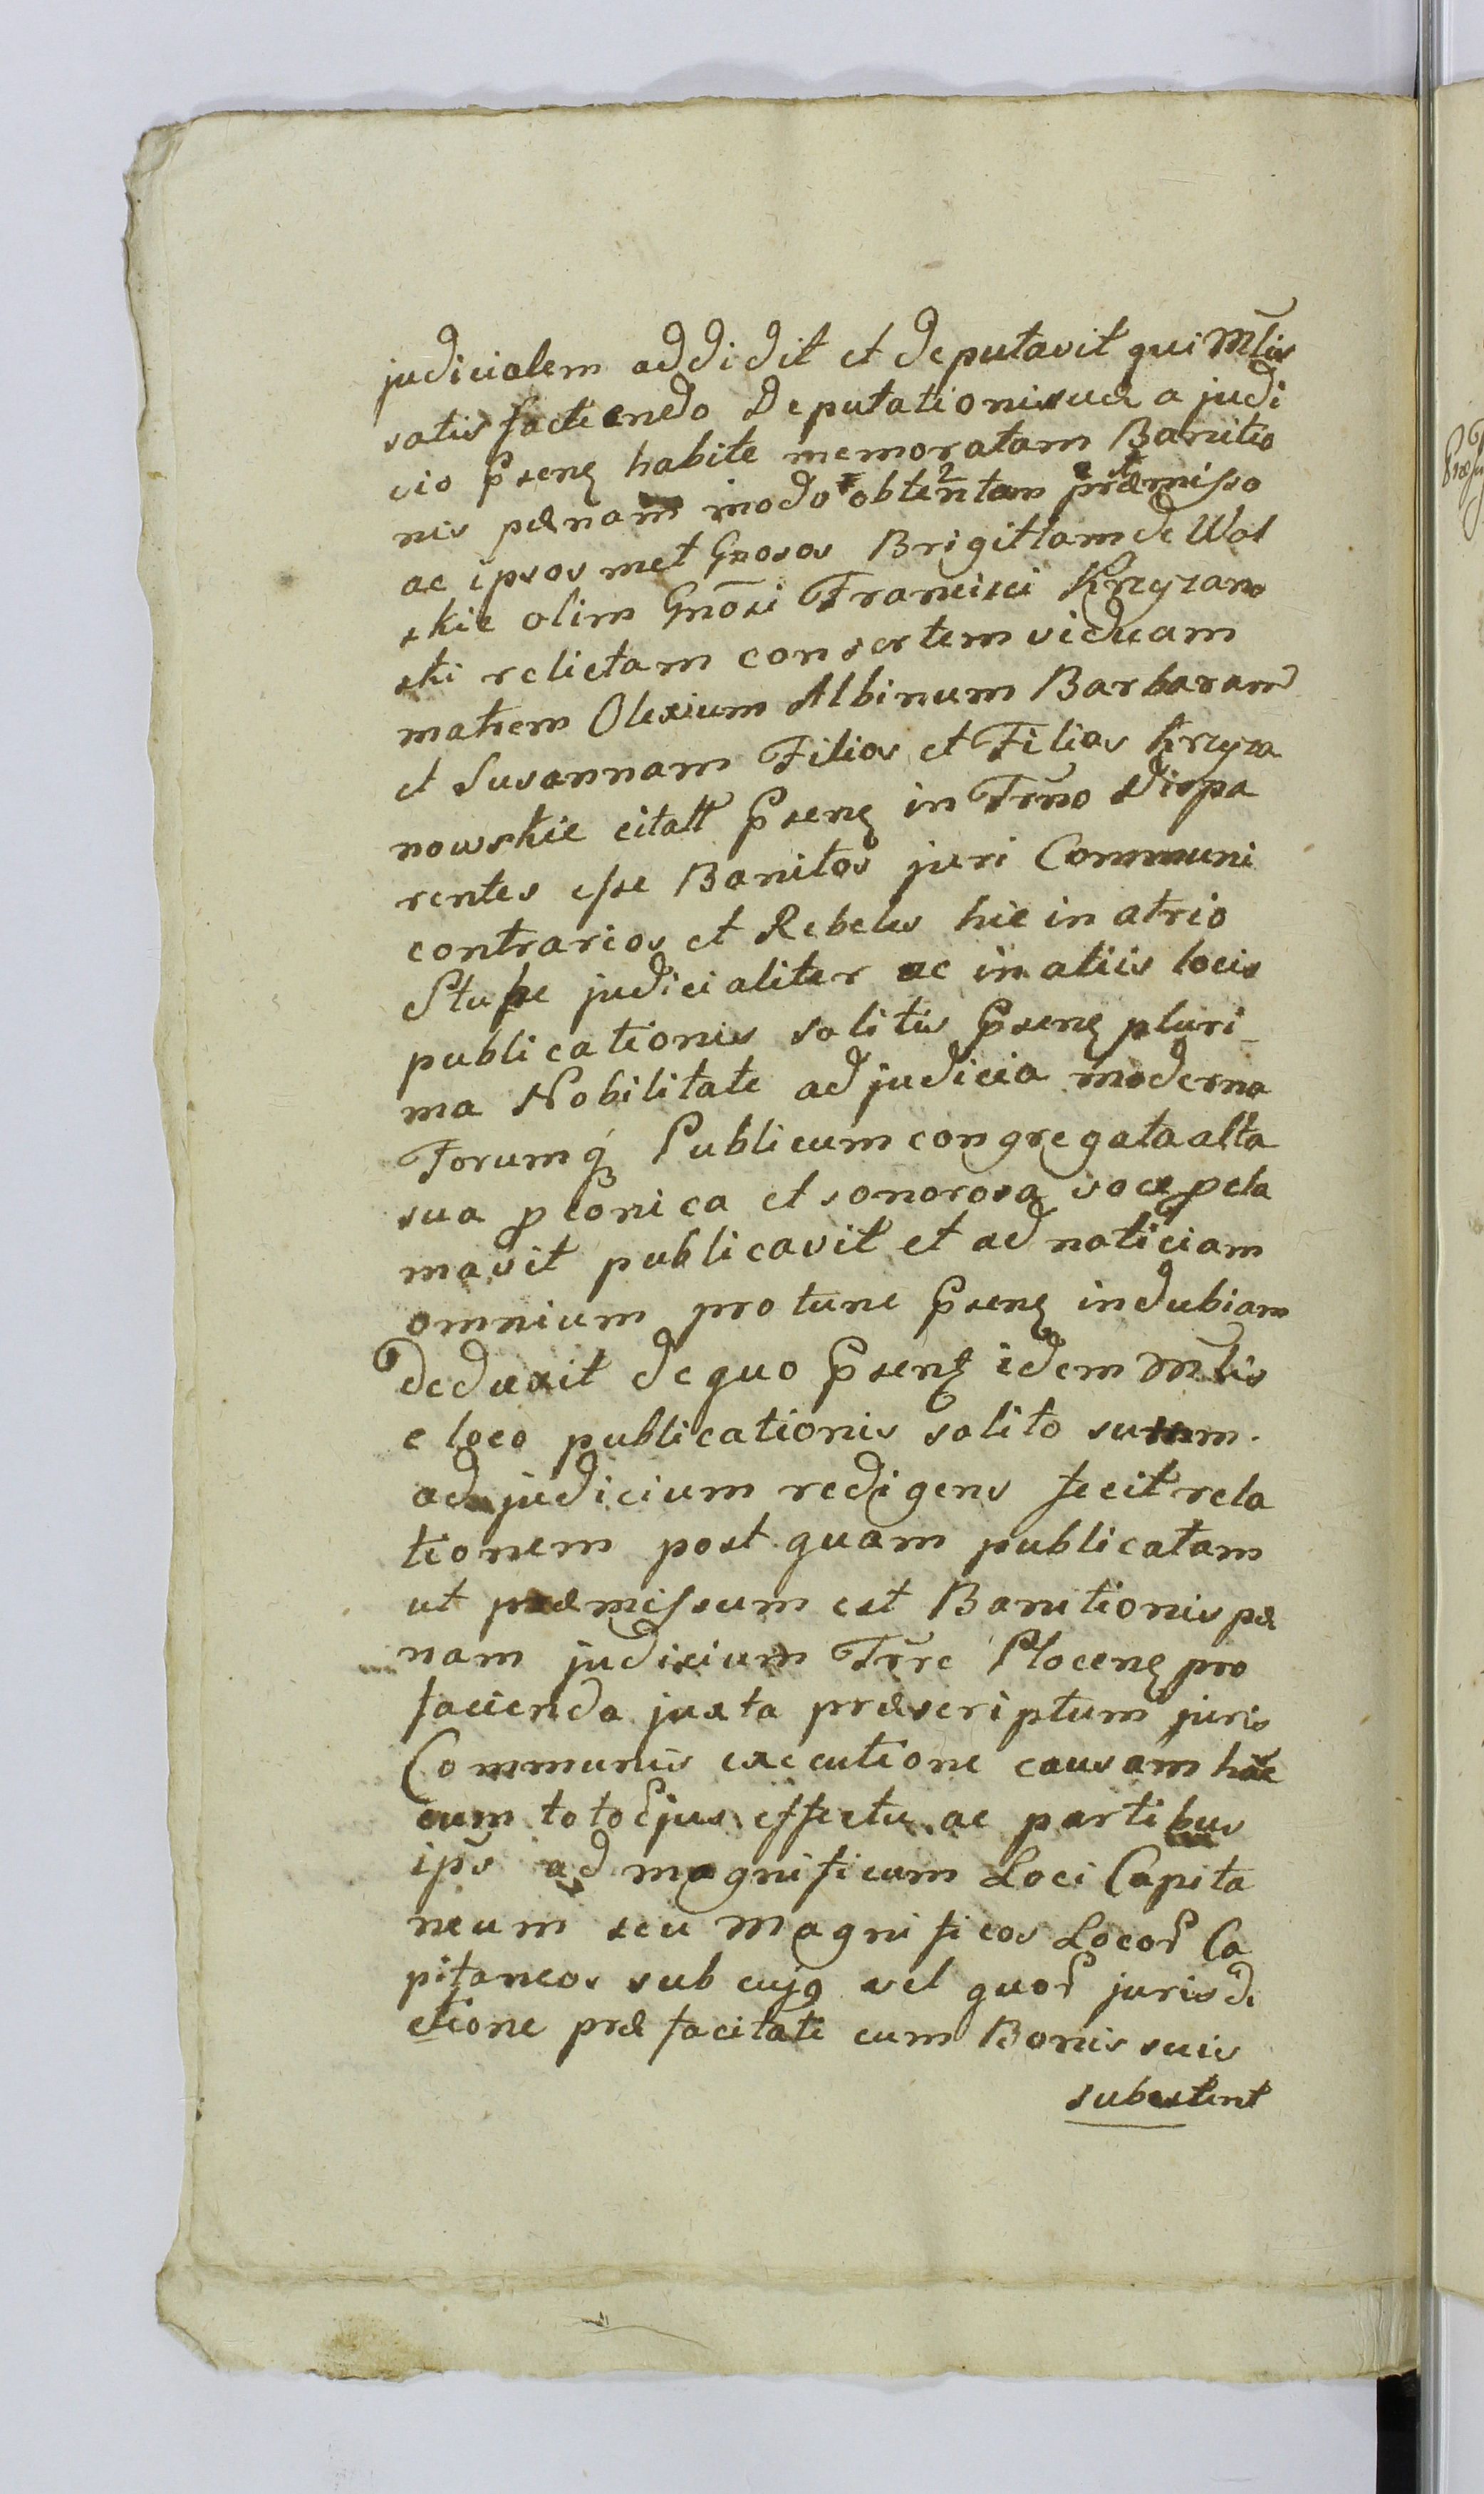 judicialem addidit et deputavit qui Mlis
satisfaciendo Deputationi suæ a judi
cio Psenȩ habite memoratam Banitio
nis pænam modo obtentam præmisso
ac ipsosmet Gnosos Brigittam de Wol
skie olim Gnosi Francisci Krzyzano
ski relictam consortem viduam
matrem Olexium Albinum Barbaram
et Susannam Filios et Filias Krzyza
nowskie citatt Psenȩ in Trno Dispa
rentes esse Banitos juri Communi
contrarios et Rebeles hic in atrio
Stubæ judicialiter ac in aliis locis
publicationis solitis Psenȩ pluri_
ma Nobilitate ad judicia moderna
Forumq; Publicum congregata alta
sua pconica et sonorosa voce pcla
mavit publicavit et ad noticiam
omnium pro tunc Psenȩ indubiam
Deduxit de quo Psent idem Mlis
e loco publicationis solito sursum.
ad judicium redigens fecit rela
tionem post quam publicatam
ut præmissum est Banitionis pæ
nam judicium Trre Plocenȩ pro
facienda juxta præscriptum juris
Communis executione causam hãc
cum toto ejus effectu ac partibus
ips ad magnificum Loci Capita
neum seu Magnificos Locor Ca
pitaneos sub cujq vel quor jurisdi
ctione præfacitati cum Bonis suis
subestent